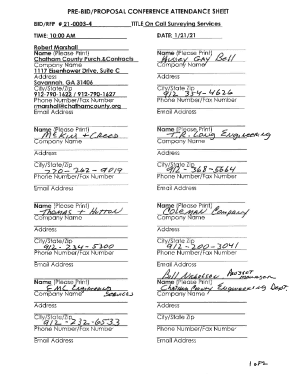 PRE-BID/PROPOSAL CONFERENCE ATTENDANCE SHEET
BID/RFP # 21-0003-4
TITLE On Call Surveying Services
TIME: 10:00 AM
DATE: 1/21/21
Robert Marshall
Name (Please Print)
Chatham County Purch.& Contracts
Company Name
1117 Eisenhower Drive, Suite C
Address
Savannah, GA 31406
City/State/Zip
912-790-1622 / 912-790-1627
Phone Number/Fax Number
rmarshall@chathamcounty.org
Email Address
Name (Please Print)
Hussey Gay Bell
Company Name
Address
City/State/Zip
912 354-4626
Phone Number/Fax Number
Email Address
Name (Please Print)
McKim & Creed
Company Name
Address
City/State/Zip
-262-9019
Phone Number/Fax Number
Email Address
Name (Please Print)
T.R. Long Engineering
Company Name
Address
City/State/Zip
912-368-5664
Phone Number/Fax Number
Email Address
Name (Please Print)
Thomas & Hutton
Company Name
Address
City/State/Zip
912-234-5300
Phone Number/Fax Number
Email Address
Name (Please Print)
Coleman Company
Company Name
Address
City/State/Zip
912-200-3041
Phone Number/Fax Number
Email Address
Name (Please Print)
EMC Engineering
Company Name Services
Address
City/State/Zip
912-232-6533
Phone Number/Fax Number
Email Address
Bill Nicholson Project Manager
Name (Please Print)
Chatham County Engineering Dept.
Company Name
Address
City/State/Zip
Phone Number/Fax Number
Email Address
1 of 2